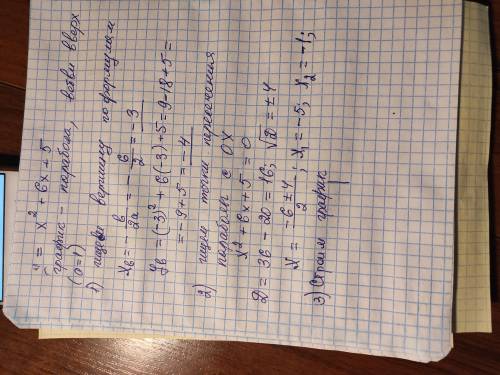 y = x² + 6x + 5
график - парабола, ветви вверх
(a=1)
1) ищем вершину по формулам
xв = -b/2a = -6/2 = -3
yв = (-3)² + 6(-3) + 5 = 9-18+5 =
= -9+5 = -4
2) ищем точки пересечения
параболы с OX
x² + 6x + 5 = 0
D = 36 - 20 = 16; √D = ±4
x = (-6±4)/2; x₁ = -5; x₂ = -1;
3) Строим график